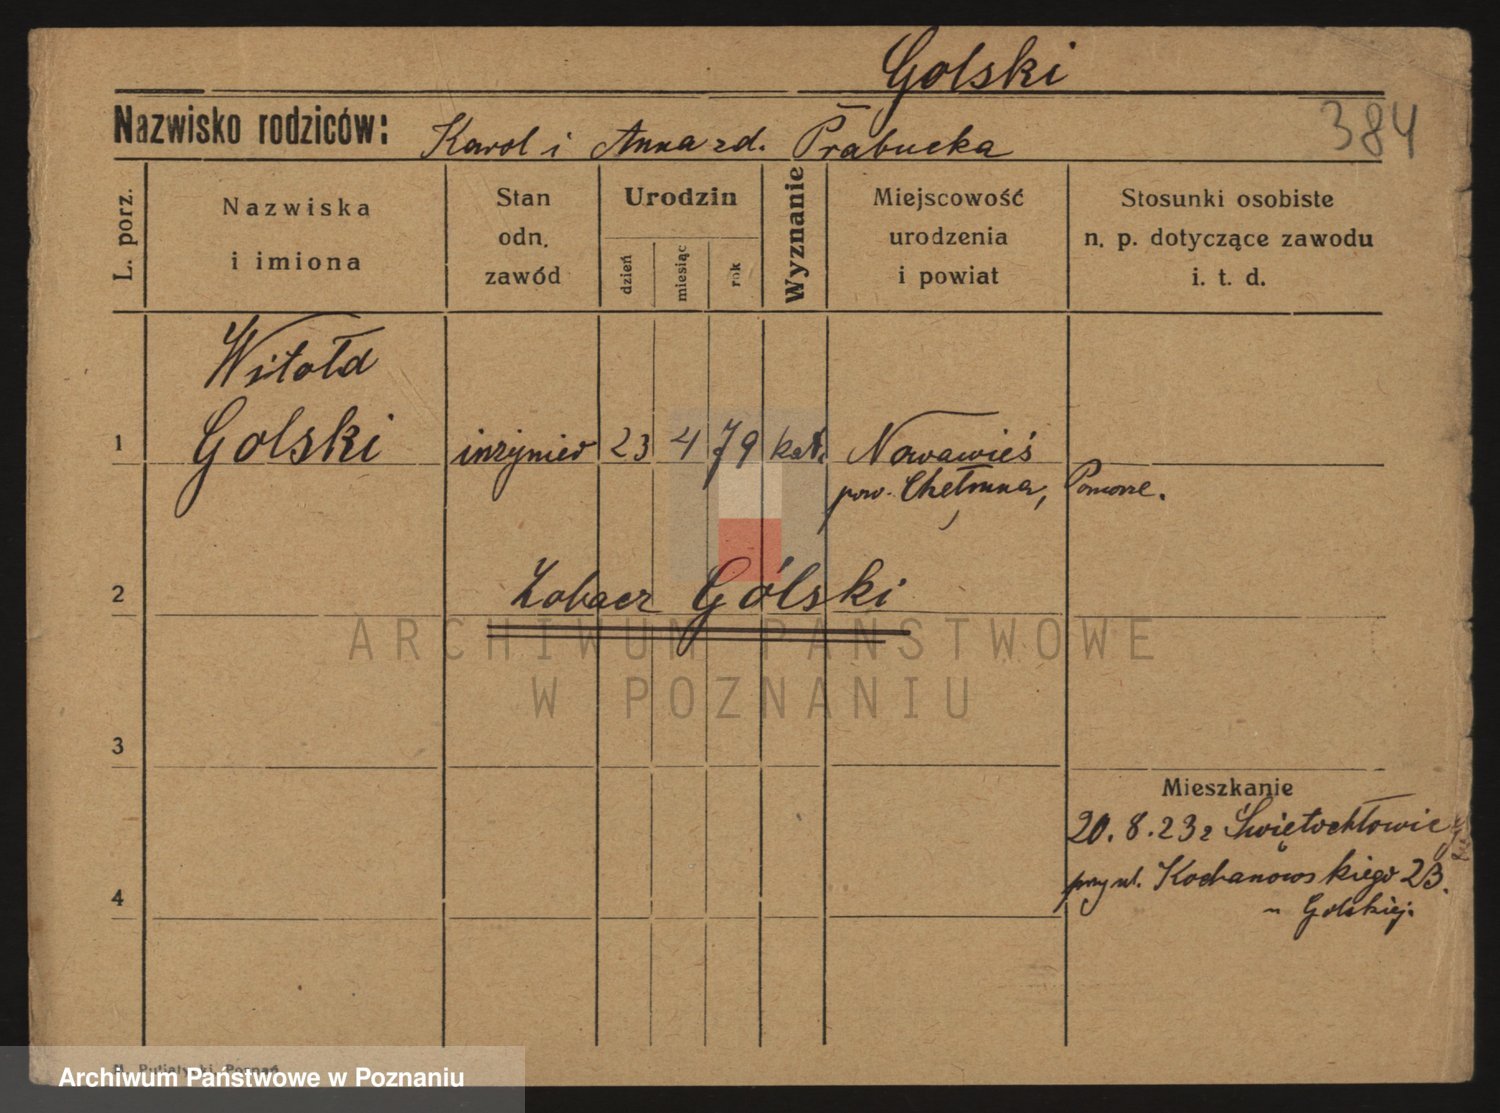 Golski
384
Nazwisko rodziców: Karol i Anna zd. Prabucka
L. porz.
Nazwiska
i imiona
Stan
odn.
zawód
Urodzin
dzień
miesiąc
rok
Wyznanie
Miejscowość
urodzenia
i powiat
Stosunki osobiste
n. p. dotyczące zawodu
i. t. d.
Witołd
1 Golski inżynier 23 4 79 kat. Nowawieś
pow. Chełmna, Pomorze.
2 Zobacz Gólski
ARCHIWUM PAŃSTWOWE
W POZNANIU
3
Mieszkanie
20.8.23 z Świętochłowic
4 przy ul. Kochanowskiego 23.
u Golskiej.
Poznań
Archiwum Państwowe w Poznaniu